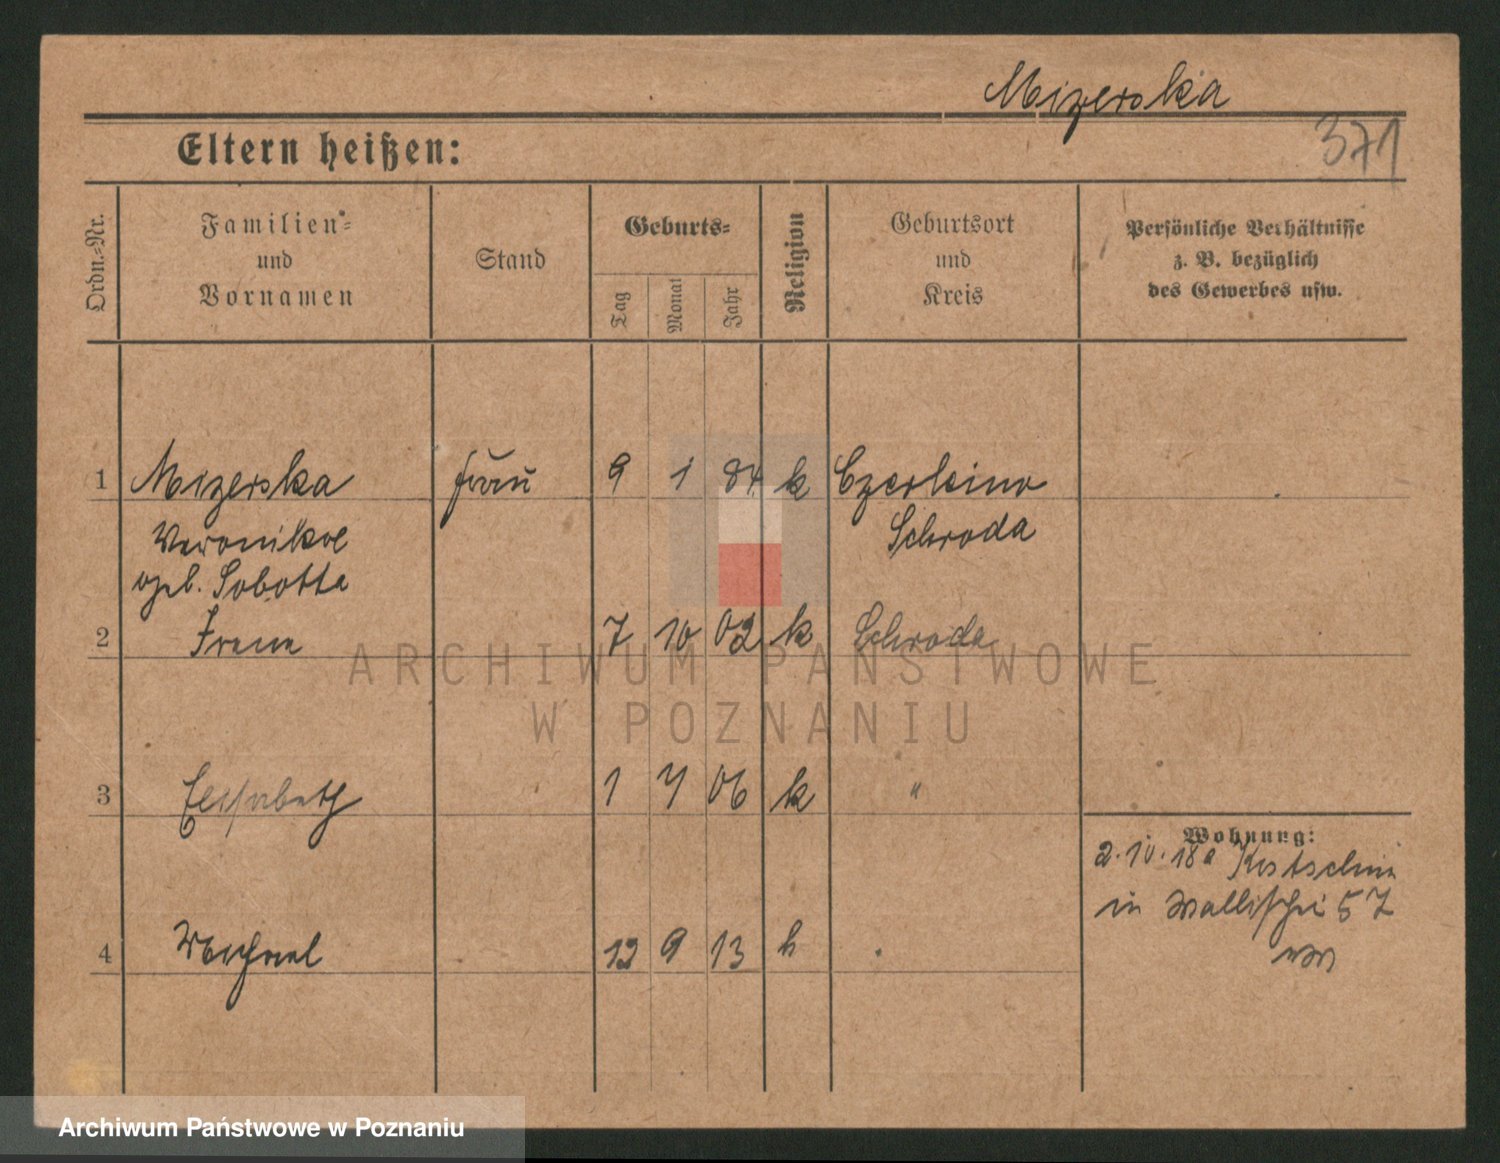 Mizerska
371
Eltern heißen:
Ordn.-Nr.
Familien- und Vornamen
Stand
Geburts-
Tag
Monat
Jahr
Religion
Geburtsort und Kreis
Persönliche Verhältnisse z. B. bezüglich des Gewerbes usw.
1 Mizerska Frau 9 1 84 k Czerleino
Veronika Schroda
geb. Sobotta
2 Irene 7 10 02 k Schroda
ARCHIWUM PAŃSTWOWE
W POZNANIU
3 Elisabeth 1 7 06 k "
Wohnung:
2.10.18 a Kostschin
in Wallischei 57
4 Michael 12 9 13 k
Archiwum Państwowe w Poznaniu